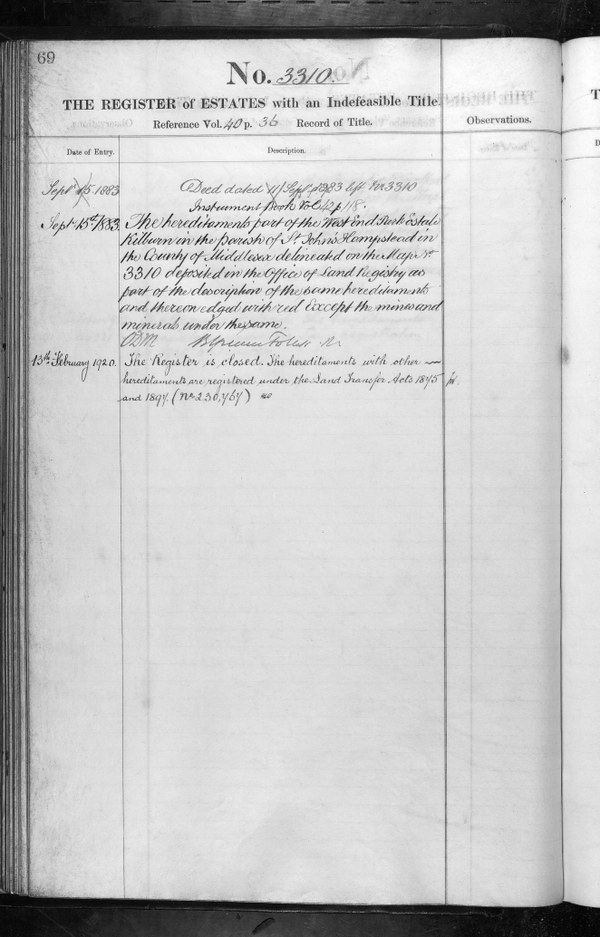 69
No. 3310.
THE REGISTER of ESTATES with an Indefeasible Title.
Reference Vol. 40 p. 36 Record of Title.
Observations.
Date of Entry.
Description.
Sept. 15 1883
Deed dated 11 Sept. 1883 left for 3310
Instrument Book Vol. 42 p 118.
Sept. 15th 1883.
The hereditaments part of the West End Park Estate
Kilburn in the parish of St. John's Hampstead in
the County of Middlesex delineated on the Map No.
3310 deposited in the Office of Land Registry as
part of the description of the same hereditaments
and thereon edged with red Except the mines and
minerals under the same.
13th February 1920.
The Register is closed. The hereditaments with other
hereditaments are registered under the Land Transfer Acts 1875
and 1897 (No. 230,767)